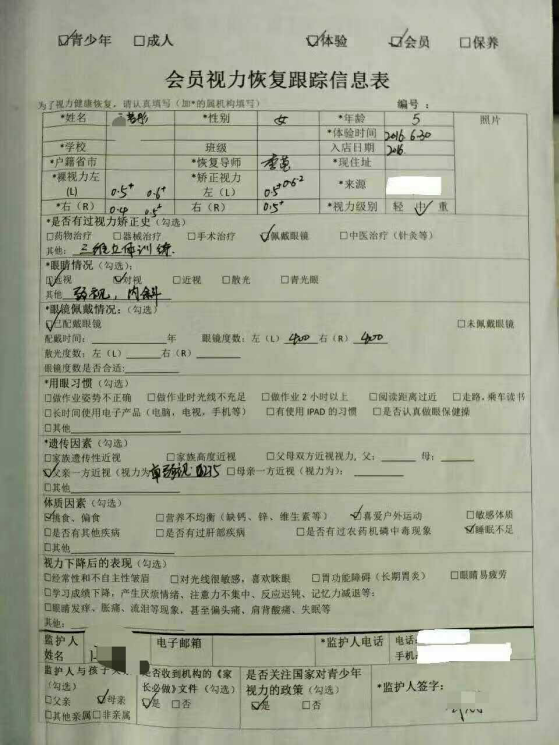 ☑青少年 □成人 ☑体验 ☑会员 □保养
会员视力恢复跟踪信息表
为了视力健康恢复，请认真填写（加*的属机构填写） 编号：
*姓名 *性别 女 *年龄 5 照片
*体验时间 2016.6.30
*学校 班级 入店日期 2016
*户籍省市 *恢复导师 *现住址
*裸视力左（L） 0.5⁺ 0.6⁺ *矫正视力左（L） 0.5⁺ 0.6⁻² *来源
*右（R） 0.4 0.5⁺ 右（R） 0.5⁺ *视力级别 轻 中 重
*是否有过视力矫正史（勾选）
□药物治疗 □器械治疗 □手术治疗 ☑佩戴眼镜 □中医治疗（针灸等）
其他：三维立体训练
*眼睛情况（勾选）：
☑远视 ☑对视 □近视 □散光 □青光眼
其他 弱视，内斜
*眼镜佩戴情况：（勾选）
☑已配戴眼镜 □未佩戴眼镜
配戴时间： 年 眼镜度数：左（L）400 右（R）400
散光度数：左（L） 右（R）
眼镜度数是否合适：
*用眼习惯（勾选）
□做作业姿势不正确 □做作业时光线不充足 □做作业2小时以上 □阅读距离过近 □走路，乘车读书
□长时间使用电子产品（电脑，电视，手机等） □有使用IPAD的习惯 □是否认真做眼保健操
□其他
*遗传因素（勾选）
□家族遗传性近视 □家族高度近视 □父母双方近视视力，父： 母：
☑父亲一方近视（视力为 □母亲一方近视（视力为）：
□其他
体质因素（勾选）
☑挑食、偏食 □营养不均衡（缺钙、锌、维生素等） ☑喜爱户外运动 □敏感体质
□是否有其他疾病 □是否有过肝部疾病 □是否有过农药机磷中毒现象 ☑睡眠不足
□其他
视力下降后的表现（勾选）
□经常性和不自主性皱眉 □对光线很敏感，喜欢眯眼 □胃功能障碍（长期胃炎） □眼睛易疲劳
□学习成绩下降，产生厌烦情绪、注意力不集中、反应迟钝、记忆力减退等：
□眼睛发痒、胀痛、流泪等现象，甚至偏头痛、肩背酸痛、失眠等
其他：
监护人姓名 电子邮箱 *监护人电话 电话：
手机：
监护人与孩子关 （勾选） 是否收到机构的《家长必做》文件（勾选） 是否关注国家对青少年视力的政策（勾选） *监护人签字：
□父亲 ☑母亲 ☑是 □否 ☑是 □否
□其他亲属 □非亲属